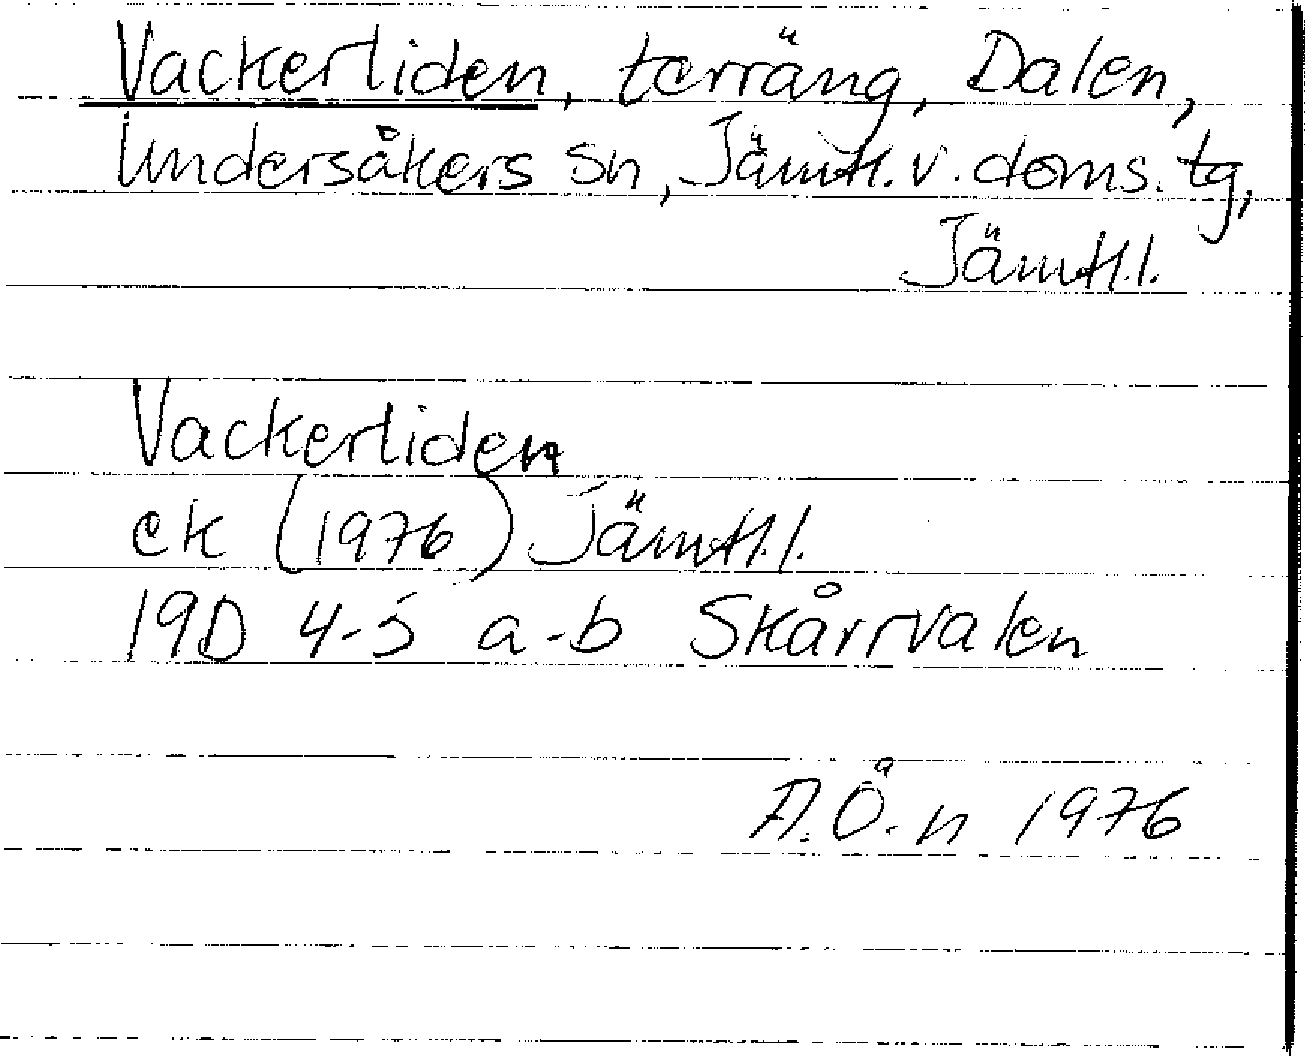 Vackerliden, terräng, Dalen,
Undersåkers sn, Jämtl. v. doms. tg,
Jämtl. l.
Vackerliden
ek (1976) Jämtl. l.
19D 4-5 a-b Skårrvalen
A.Ö.n 1976